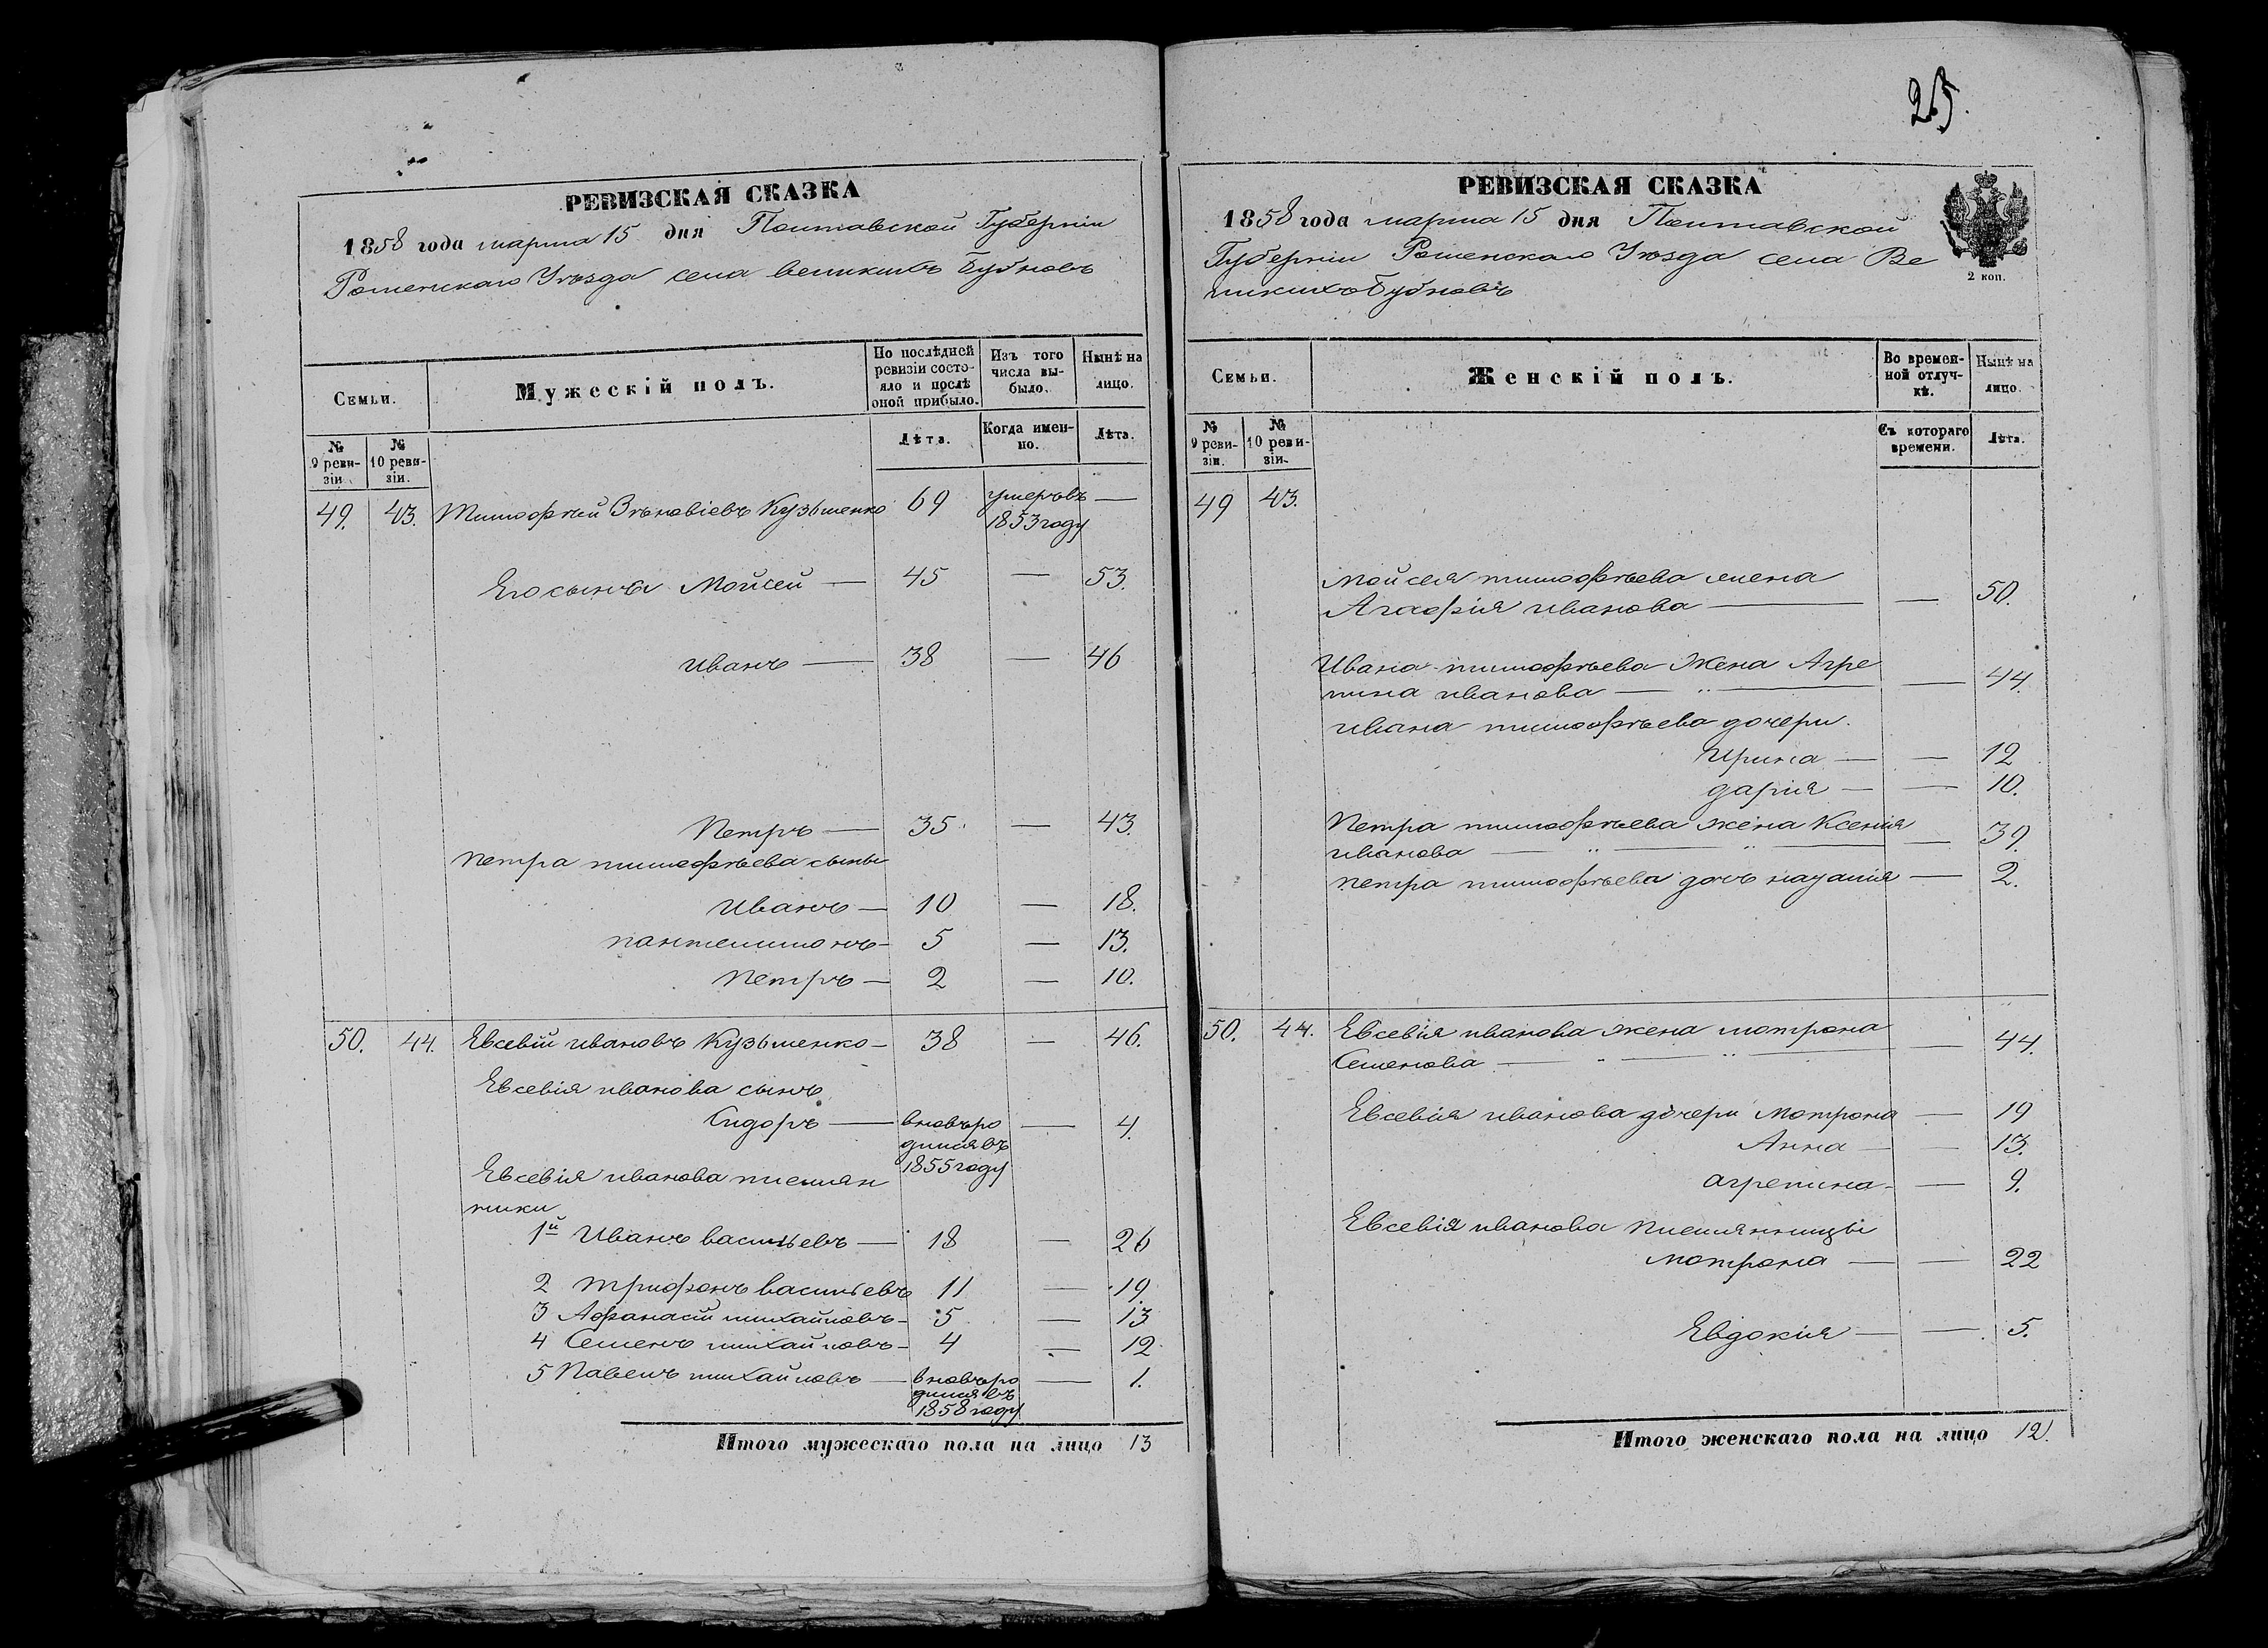 РЕВИЗСКАЯ СКАЗКА
1858 года марта 15 дня Полтавской Губерніи
Роменскаго Уѣзда села Великихъ Бубновъ
Семьи.
Мужескій полъ.
По послѣдней ревизіи состояло и послѣ оной прибыло.
Изъ того числа выбыло.
Нынѣ на лицо.
№ 9 ревизіи.
№ 10 ревизіи.
Лѣта.
Когда именно.
Лѣта.
49. 43. Тимофѣй Зѣновіевъ Кузьменко 69 умеръ въ —
1853 году
Его сынъа Мойсей — 45 — 53.
Иванъ — 38 — 46
Петръ — 35. — 43.
Петра тимофѣева сыны
Иванъ — 10 — 18.
пантелимонъ — 5 — 13.
Петръ — 2 — 10.
50. 44. Евсевій ивановъ Кузьменко — 38 — 46.
Евсевія иванова сынъ
Сидоръ — вновь ро — 4.
дился въ
1855 году
Евсевія иванова племян
ники
1й Иванъ васильевъ — 18 — 26
2 трифонъ васильевъ 11 — 19.
3 Афанасій михайловъ — 5 — 13
4 Семенъ михайловъ — 4 — 12
5 Павелъ михайловъ — вновь ро — 1.
дился въ
1858 году
Итого мужескаго пола на лицо 13
25.
РЕВИЗСКАЯ СКАЗКА
1858 года марта 15 дня Полтавской
Губерніи Роменскаго Уѣзда села Ве
ликихъ Бубновъ
2 коп.
Семьи.
Женскій полъ.
Во временной отлучкѣ.
Нынѣ на лицо.
№ 9 ревизіи.
№ 10 ревизіи.
Съ котораго времени.
Лѣта.
49 43.
Мойсея тимофѣева жена
Агафія иванова — — 50.
Ивана тимофѣева жена Агре
пина иванова — " — — 44.
ивана тимофѣева дочери.
Ирина — — 12
дария — — 10.
Петра тимофѣева жена Ксения
иванова — " — " — — 39.
петра тимофѣева дочь наталия — 2.
50. 44. Евсевія иванова жена мотрона
Семенова — " — " — — 44.
Евсевія иванова дочери Мотрона — 19
Анна — — 13.
агрепина — — 9.
Евсевія иванова племянницы
мотрона — — 22
Евдокія — — 5.
Итого женскаго пола на лицо 12.